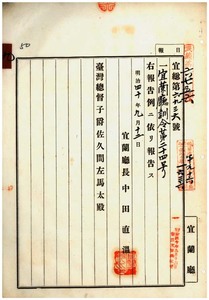 日報
宜總第六九三六號
一宜蘭廳訓令第二十四號
右報告例ニ依リ報告ス
明治四十年九月十三日
宜蘭廳長中田直溫
臺灣總督子爵佐久間左馬太殿
宜蘭廳